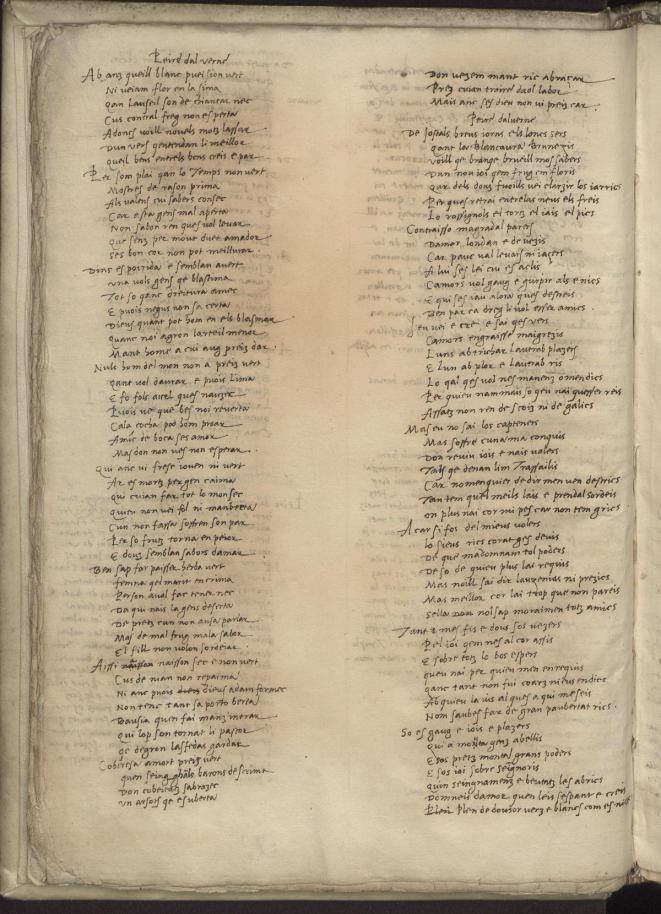 Peire dal verne
Ab anz queill blanc puei sion vert
Ni veiam flor en la sima
Qan lauseil son de chantar nec
Cus contral freg non esperta
Adoncs voill novels motz lassar
Dun vers qentendan li meillor
Queil bens entrels bons creis e par
Per som plai qan lo temps non vert
Mostres de rason prima
Als valens cui sabers consec
Car esta gens mal aperta
Non sabon ren ques vol levar
Que senz per mover duet amador
Ses bon cor non pot meillurar
Dins es poirida e semblan avert
Una vols gens qe blastima
Tot so qanc dreitura amec
E puois negus non sa certa
Dieus quant pot hom en els blasmar
Quanc noi agron larteil menor
Mant home a cui aug preiz dar
Nuls hom del mon non a preiz vert
Qant vol daurar e puois lima
E fo fols aicel ques navzec
Puois ve que bes noi reverta
Cala cocha pod hom proar
Amic de boca ses amor
Mas don non ves non esperar
Qui anc vi frese joven ni vert
Ar es mortz per gen caima
Qui cuian far tot lo mon sec
Quieu non vei fol ni manberta
Cun non fassa soffren son par
Per so frutz torna en peior
E dous semblan sabors damar
Ben sap far paisser herba vert
Femna qel marit encrima
Person aval fac tener nec
Da qui nais la gens deserta
De pretz cun non ausa parlar
Mas de mal frug mala sabor
E fill non volon sordeiar
Aissi naisson sec e non vert
Cus de nian non repaima
Ni anc puois dieus adam formec
Non tenc tant sa porto berta
Bausia quen fai manz intrar
Qui lop son tornat li pastor
Qe degron las fedas gardar
Coberesa amort preiz vert
Quen seing ghals barons descrima
Don cobeitatz sabrazec
Un arsors qe es uberta
Don vezem mant ric abrasar
Pretz cuian traire daol labor
Mais anc ses dieu non vi preiz car
Peire dalverne
De josials breus jorns els loncs sers
Qant la blancaura brunezis
Voill qe brange brueill mos sabers
Dun non ioi qem frug em floris
Qar dels douz fuoills vei clarzir los iarrics
Per ques retrai entrelas neus els freis
Lo rossignols el tortz el iais el pics
Contraisso magradal parers
Damor londan e de vezis
Car pauc val levars ni iazers
A lui ses lei cui es aclis
Camors vol gaug e guirpir als enics
E qui ses iau alora ques destreis
Ben par ca dreg li vol esser amics
Jeu vei e cre e sai qes vers
Camors engraisse maigrezis
Luns ab trichar lautrab plazers
E lun ab plor e lautrab ris
Lo qal qes vol nes manenz omendics
Per quieu nam mais so qeu nai quesser reis
Assatz non ren descotz ni de galics
Mas eu no sai los capteners
Mas soffre cuna ma conquis
Don reviu iois e nais valers
Tals qe denan lim trassaillis
Car nomenquier de dir men ven destrics
Tan tem quel meils lais e prendal sordeis
On plus nai cor mi pes car non tem grics
A car si fos del mieus volers
Lo sieus rics coratges devis
De que madomnam tol poders
De so de quieu plus lai requis
Mas noill sai dir lauzenias ni prezics
Mas meillor cor lai trop que non pareis
Sella nol sap moraimen totz amics
Tant mes fis e dous sos vezers
Pel ioi qem nes al cor assis
E sobre totz lo bos espers
Queu nai per quieu men enrequis
Qanc tant non fui coarz nieus endics
Ab quieu la vis al ques aqui meseis
Nom saubes far de gran paubertat rics
So es gaug e iois e plazers
Qui a moutas genz abellis
E sos pretz monta grans poders
E sos ioi sobre seignoris
Quin seingnamenz e beutatz les abrics
Domneis damor quen leis sespant e creis
Plen de doussor vertz e blancs com es nics